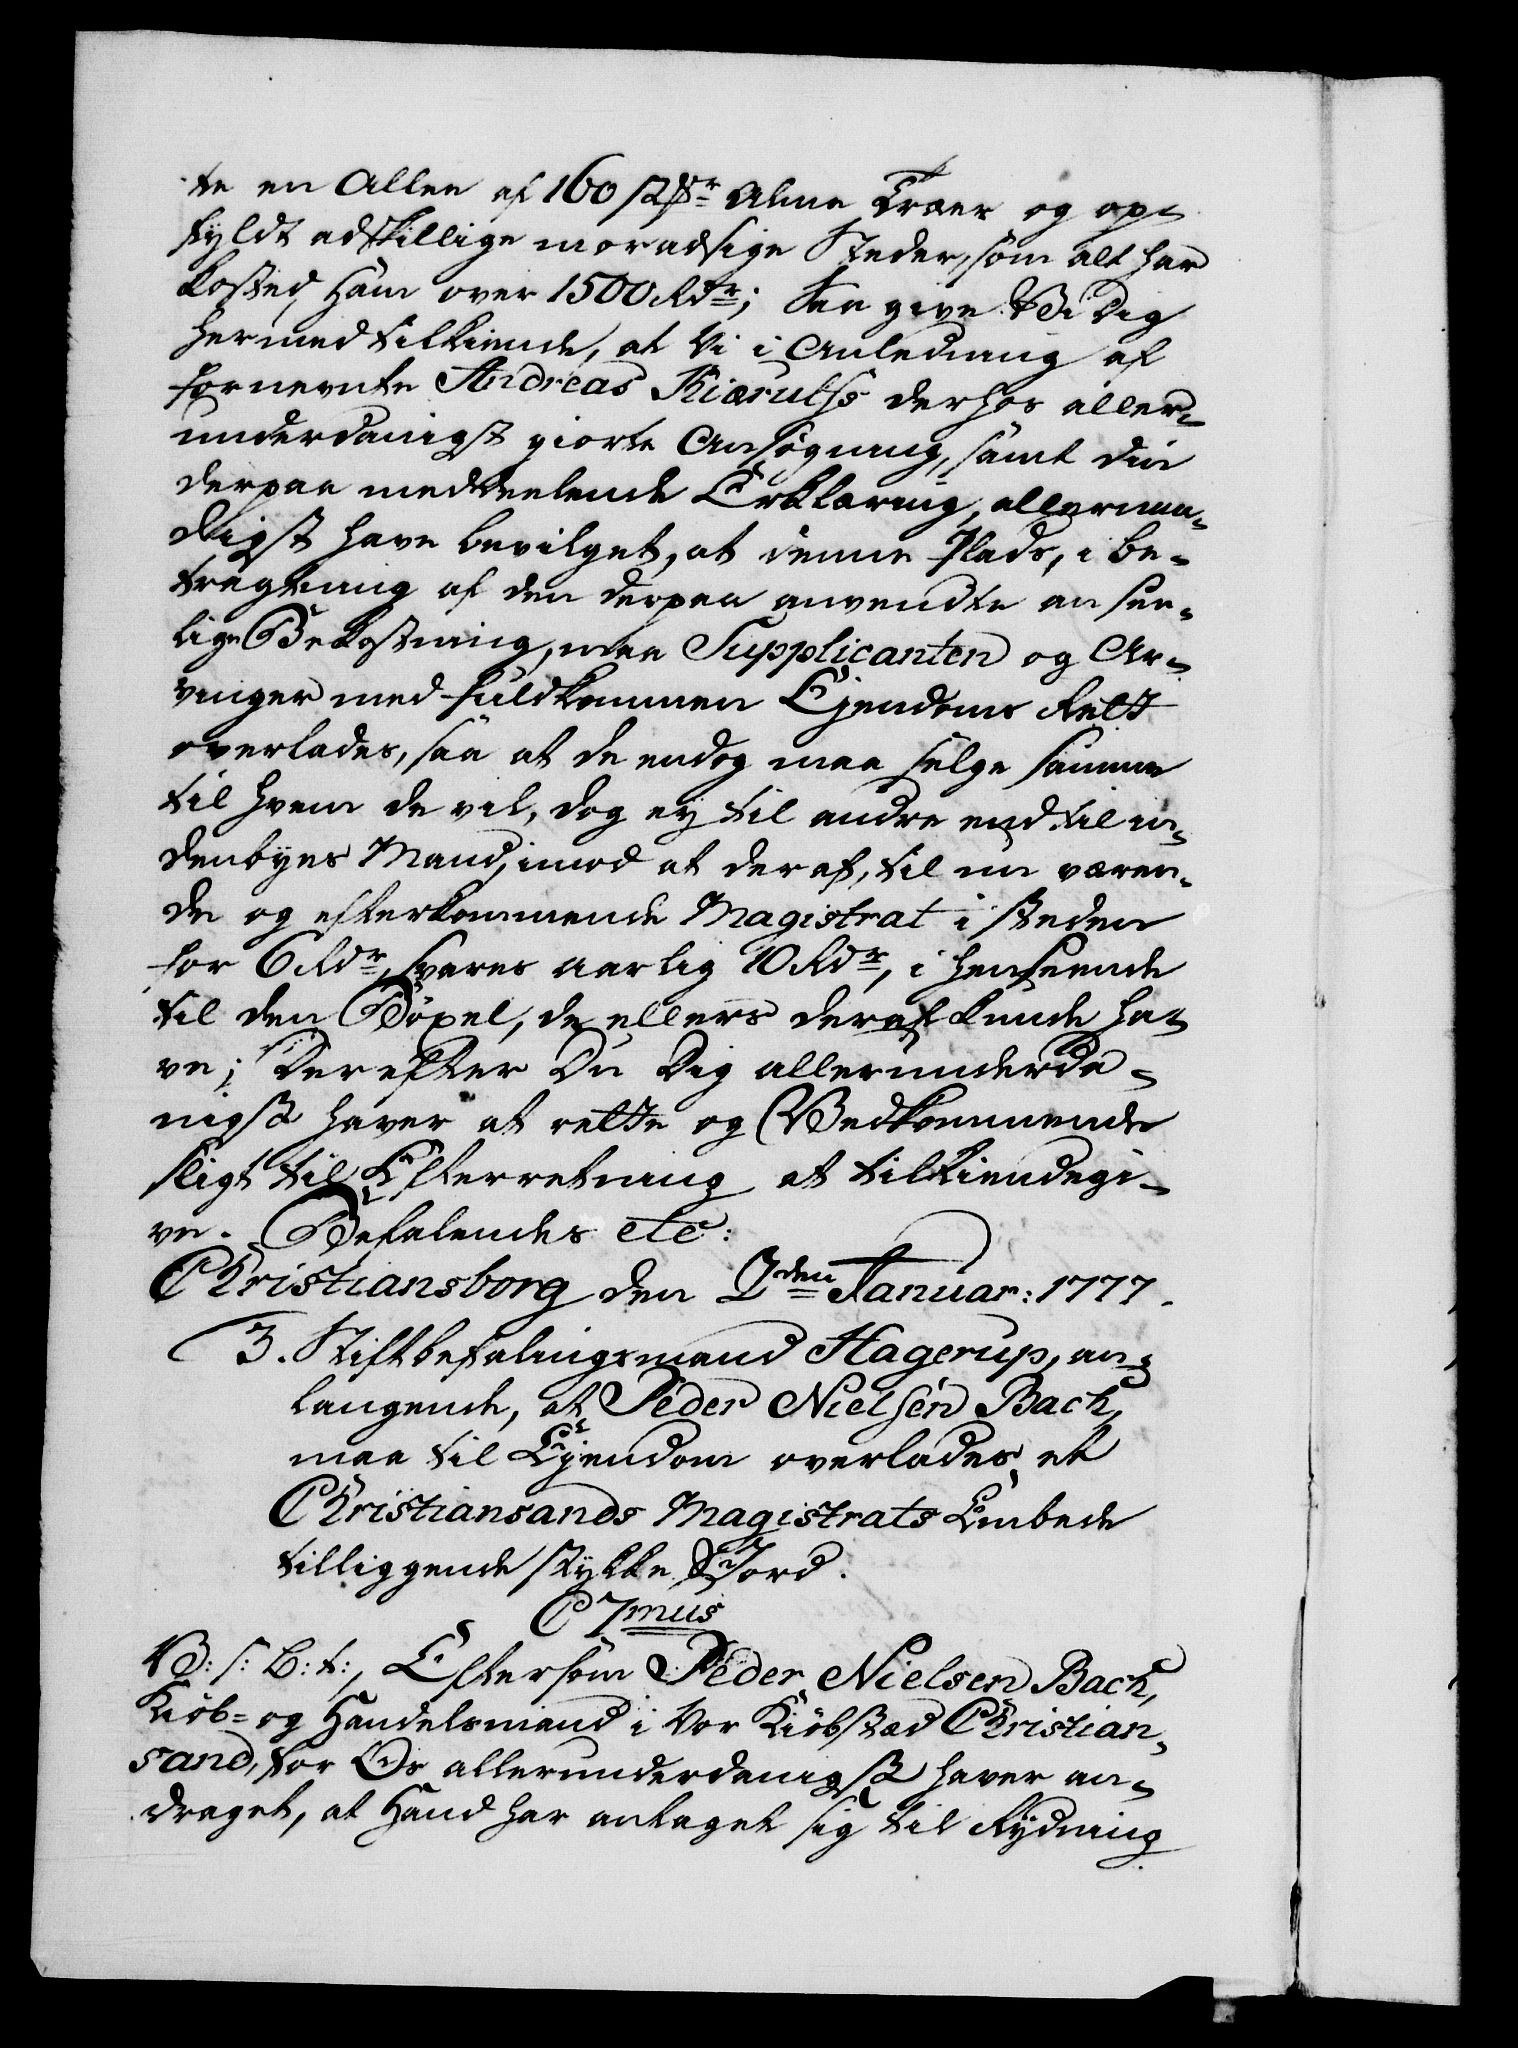 te en Allee af 160 stkr Alme Træer og op-
fyldt adskillige moradsige Steder, som alt har
kosted ham over 1500 Rdr; Saa give Vi Dig
hermed tilkiende, at Vi i Anledning af
fornevnte Andreas Kiærulfs derhos aller-
underdanigst giorte Ansøgning, samt din
derpaa meddeelende Erklæring, allernaa-
digst have bevilget, at denne Plads, i be-
tragtning af den derpaa anvendte ansee-
lige Bekostning, maa Supplicanten og Ar-
vinger med fuldkommen Ejendoms Rett
overlades, saa at de endog maa selge samme
til hvem de vil, dog ej til andre end til in-
denbyes Mænd, imod at deraf, til nu væren-
de og efterkommende Magistrat i steden
for 6 Rdr, svares aarlig 10 Rdr, i henseende
til den Döpel, de ellers deraf kunde ha-
ve; Derefter Du Dig allerunderda-
nigst haver at rette og Vedkommende
sligt til Efterretning at tilkiendegi-
ve. Befalendes etc:
Christiansborg den 2den Januar: 1777.
3. Stiftbefalingsmand Hagerup, an-
langende, at Peder Nielsen Bach,
maa til Ejendom overlades et
Christiansands Magistrats Embede
tilliggende stykke Jord.
C 7mus
V: s: B: t:, Eftersom Peder Nielsen Bach,
Kiøb- og Handelsmand i Vor Kiøbstæd Christian-
sand, for Os allerunderdanigst haver an-
draget, at Hand har antaget sig til Rydning